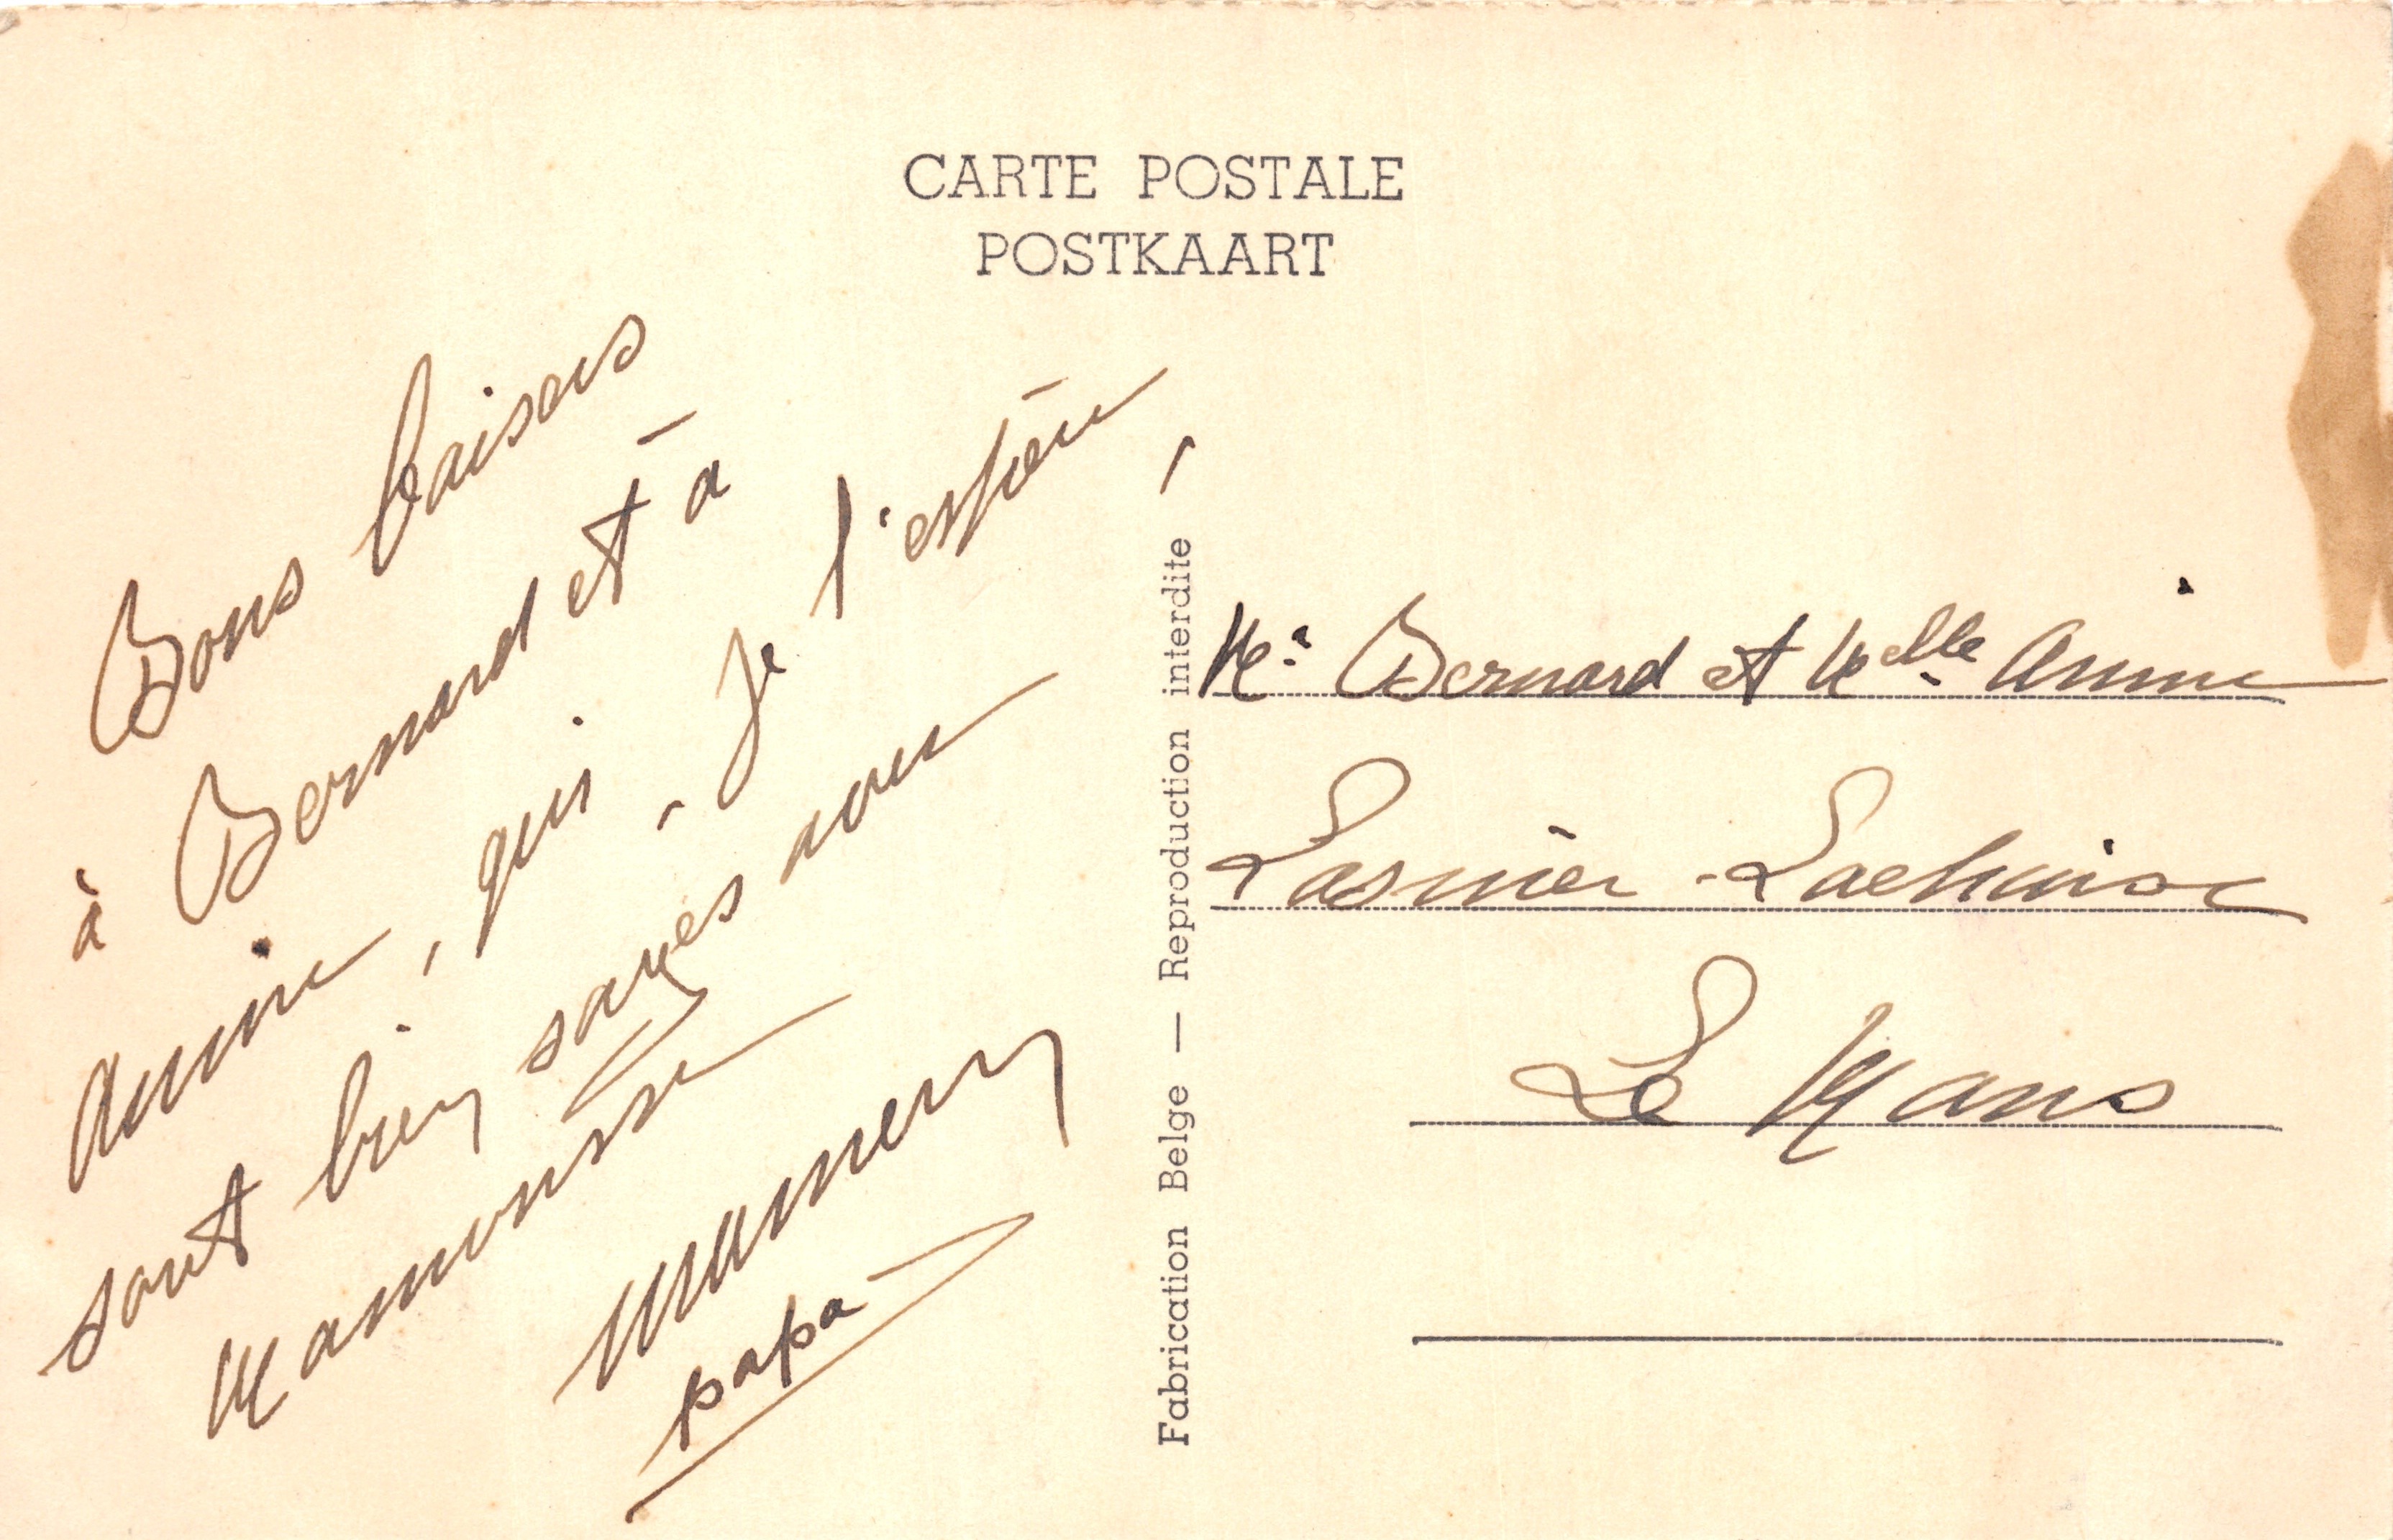 CARTE POSTALE
POSTKAART
Bons baisers
à Bernard et à
Annie, qui, je l'espère,
sont bien sages avec
maman
papa
Fabrication Belge — Reproduction interdite
Mr Bernard et Melle Annie
Lasnier - Lachaise
Le Mans